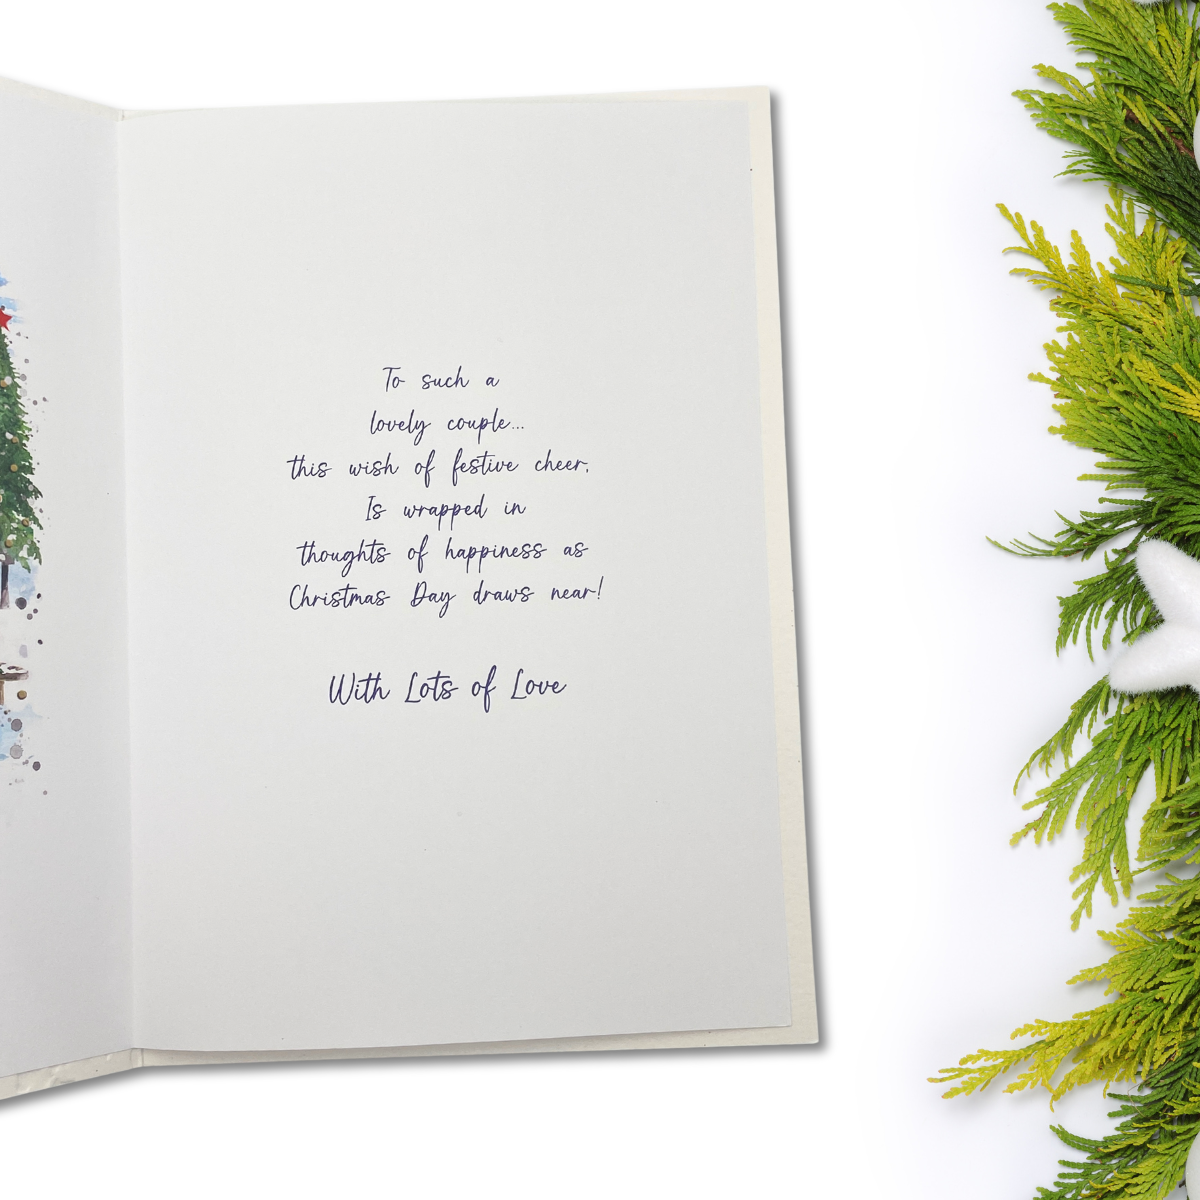 To such a
lovely couple...
this wish of festive cheer,
Is wrapped in
thoughts of happiness as
Christmas Day draws near!
With Lots of Love